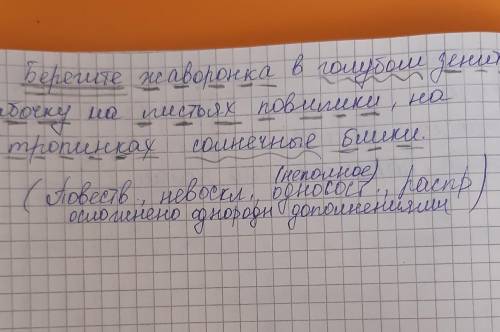 Берегите жаворонка в голубом зенит
бочку на листьях повилики, на
тропинках солнечные блики.
(неполное)
(Повеств, невоскл, односост, распр)
осложнено однородн дополнениями